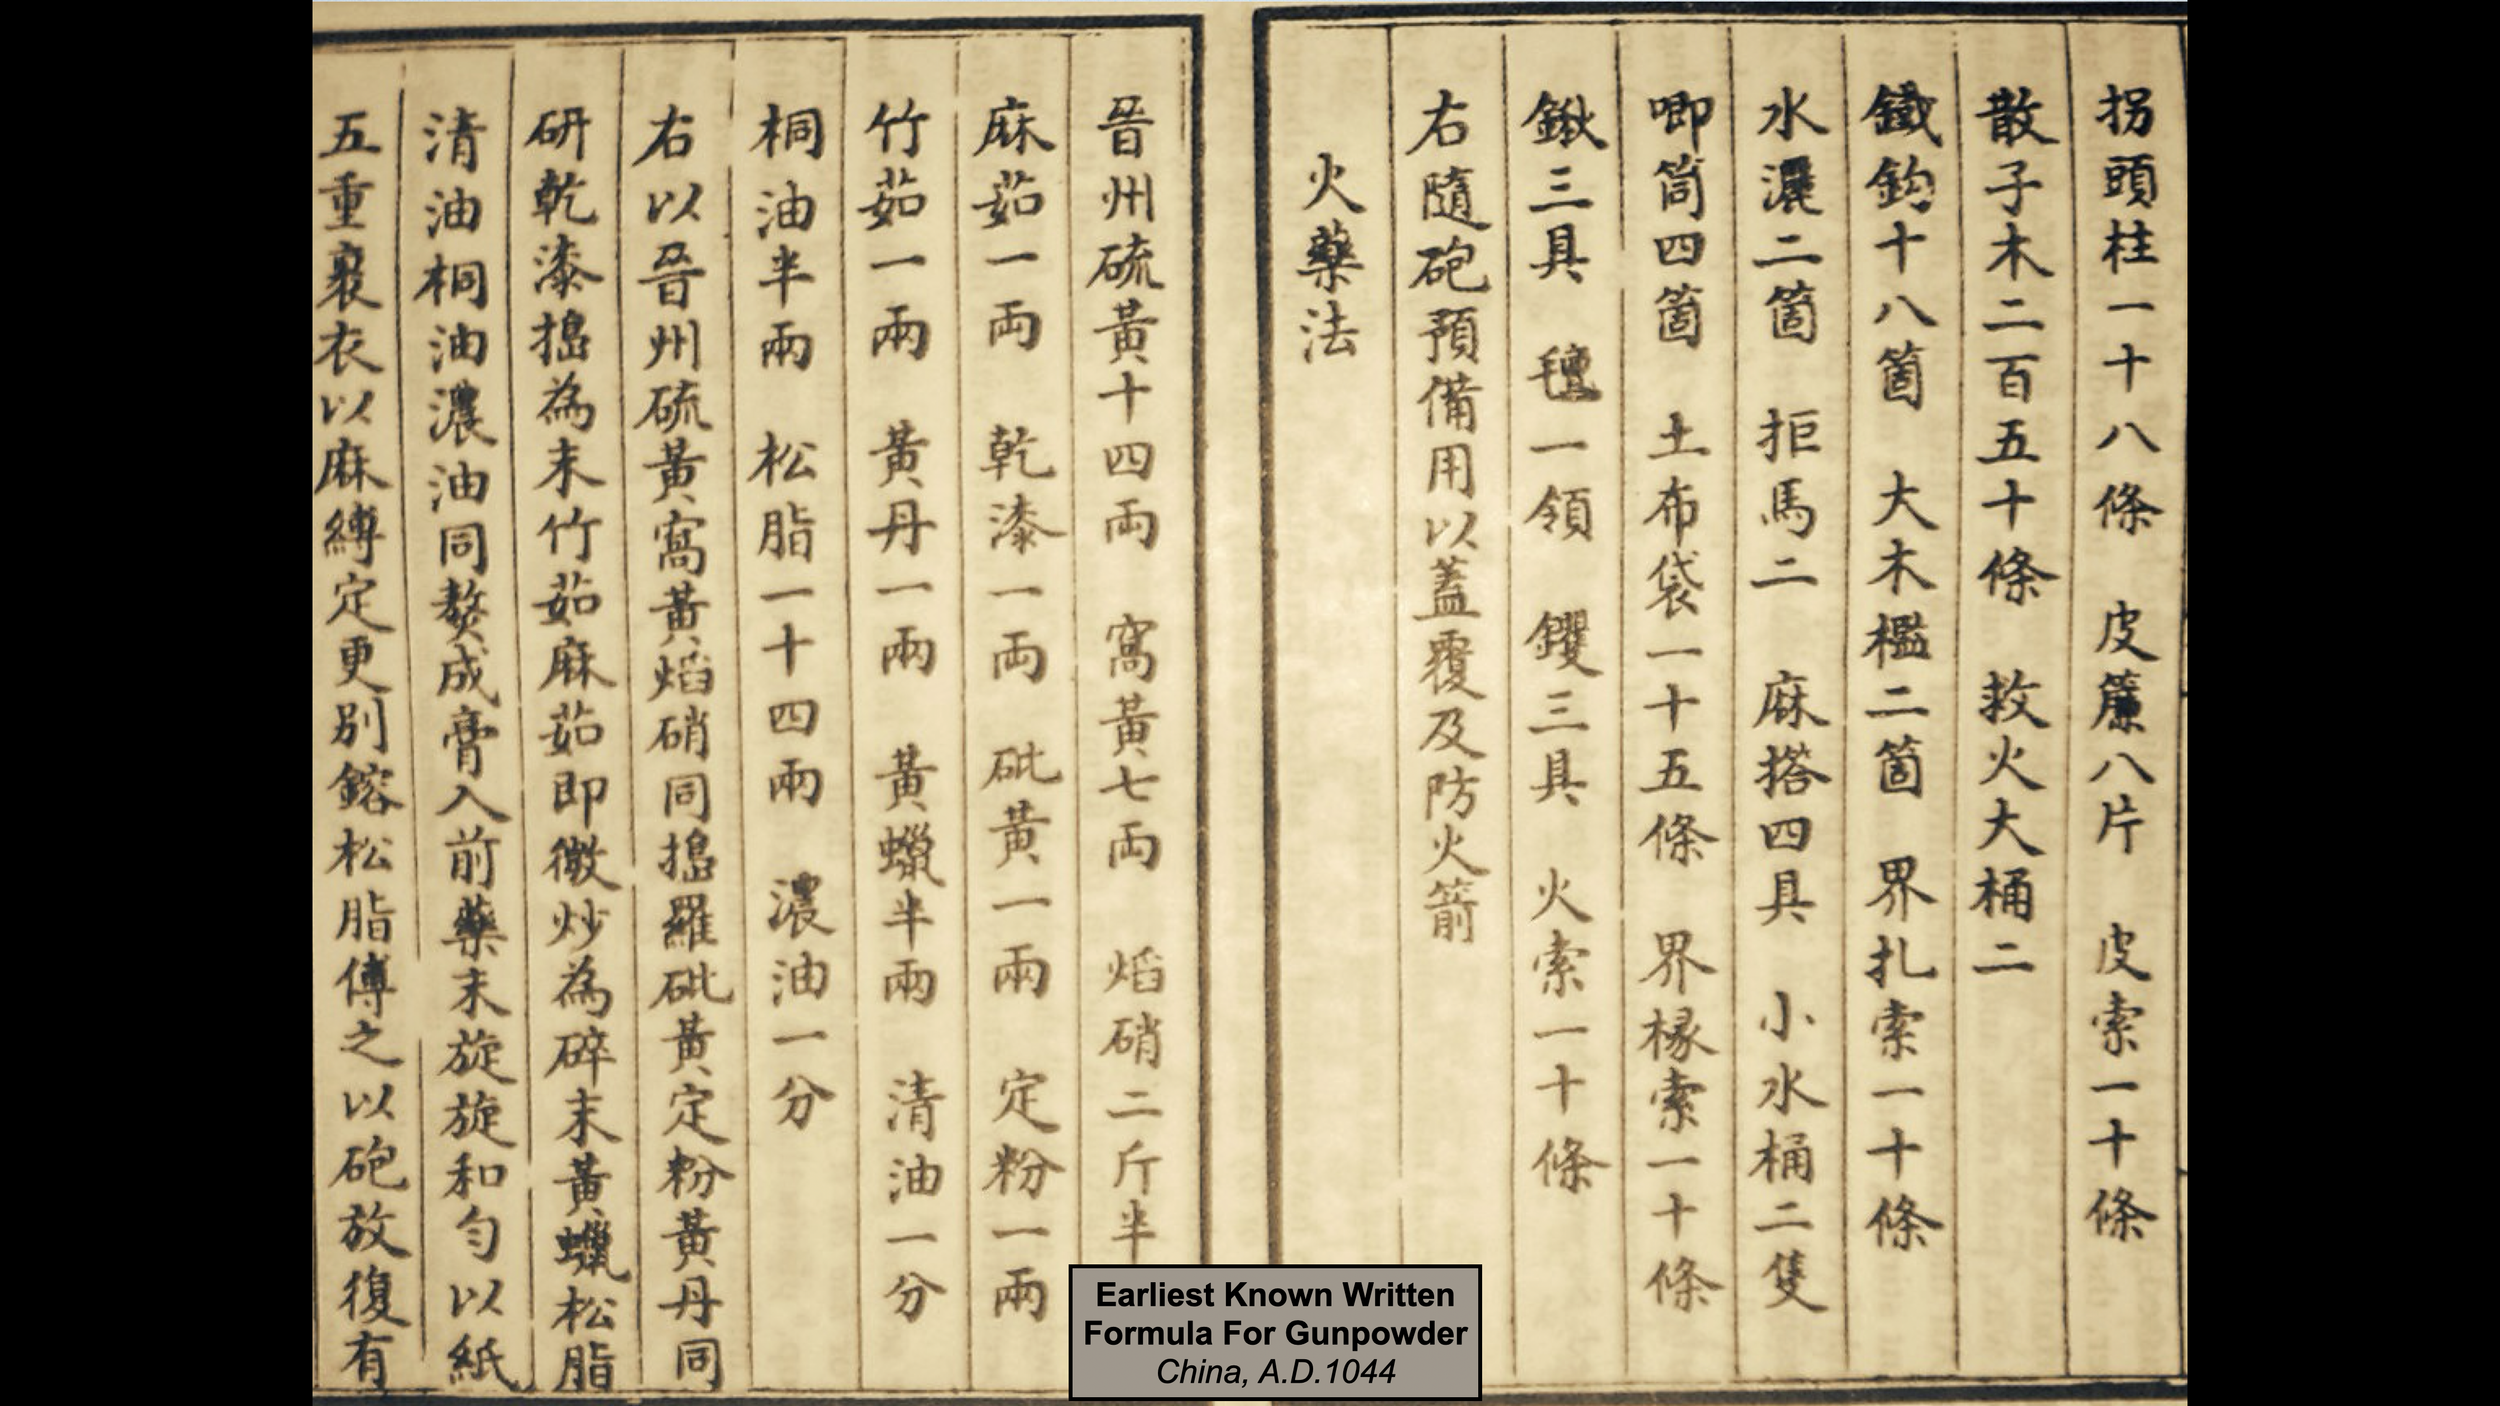 拐頭柱一十八條 皮簾八片 皮索一十條
散子木二百五十條 救火大桶二
鐵鈎十八箇 大木檻二箇 界扎索一十條
水濃二箇 拒馬二 麻搭四具 小水桶二隻
唧筒四箇 土布袋一十五條 界椽索一十條
鍬三具 氊一領 钁三具 火索一十條
右隨砲預備用以蓋覆及防火箭
火藥法
晉州硫黃十四兩 窩黃七兩 焰硝二斤半
麻茹一兩 乾漆一兩 砒黃一兩 定粉一兩
竹茹一兩 黃丹一兩 黃蠟半兩 清油一分
桐油半兩 松脂一十四兩 濃油一分
右以晉州硫黃窩黃焰硝同搗羅砒黃定粉黃丹同
研乾漆搗為末竹茹麻茹即微炒為碎末黃蠟松脂
清油桐油濃油同熬成膏入前藥末旋旋和勻以紙
五重裹衣以麻縛定更別鎔松脂傅之以砲放復有
Earliest Known Written
Formula For Gunpowder
China, A.D.1044